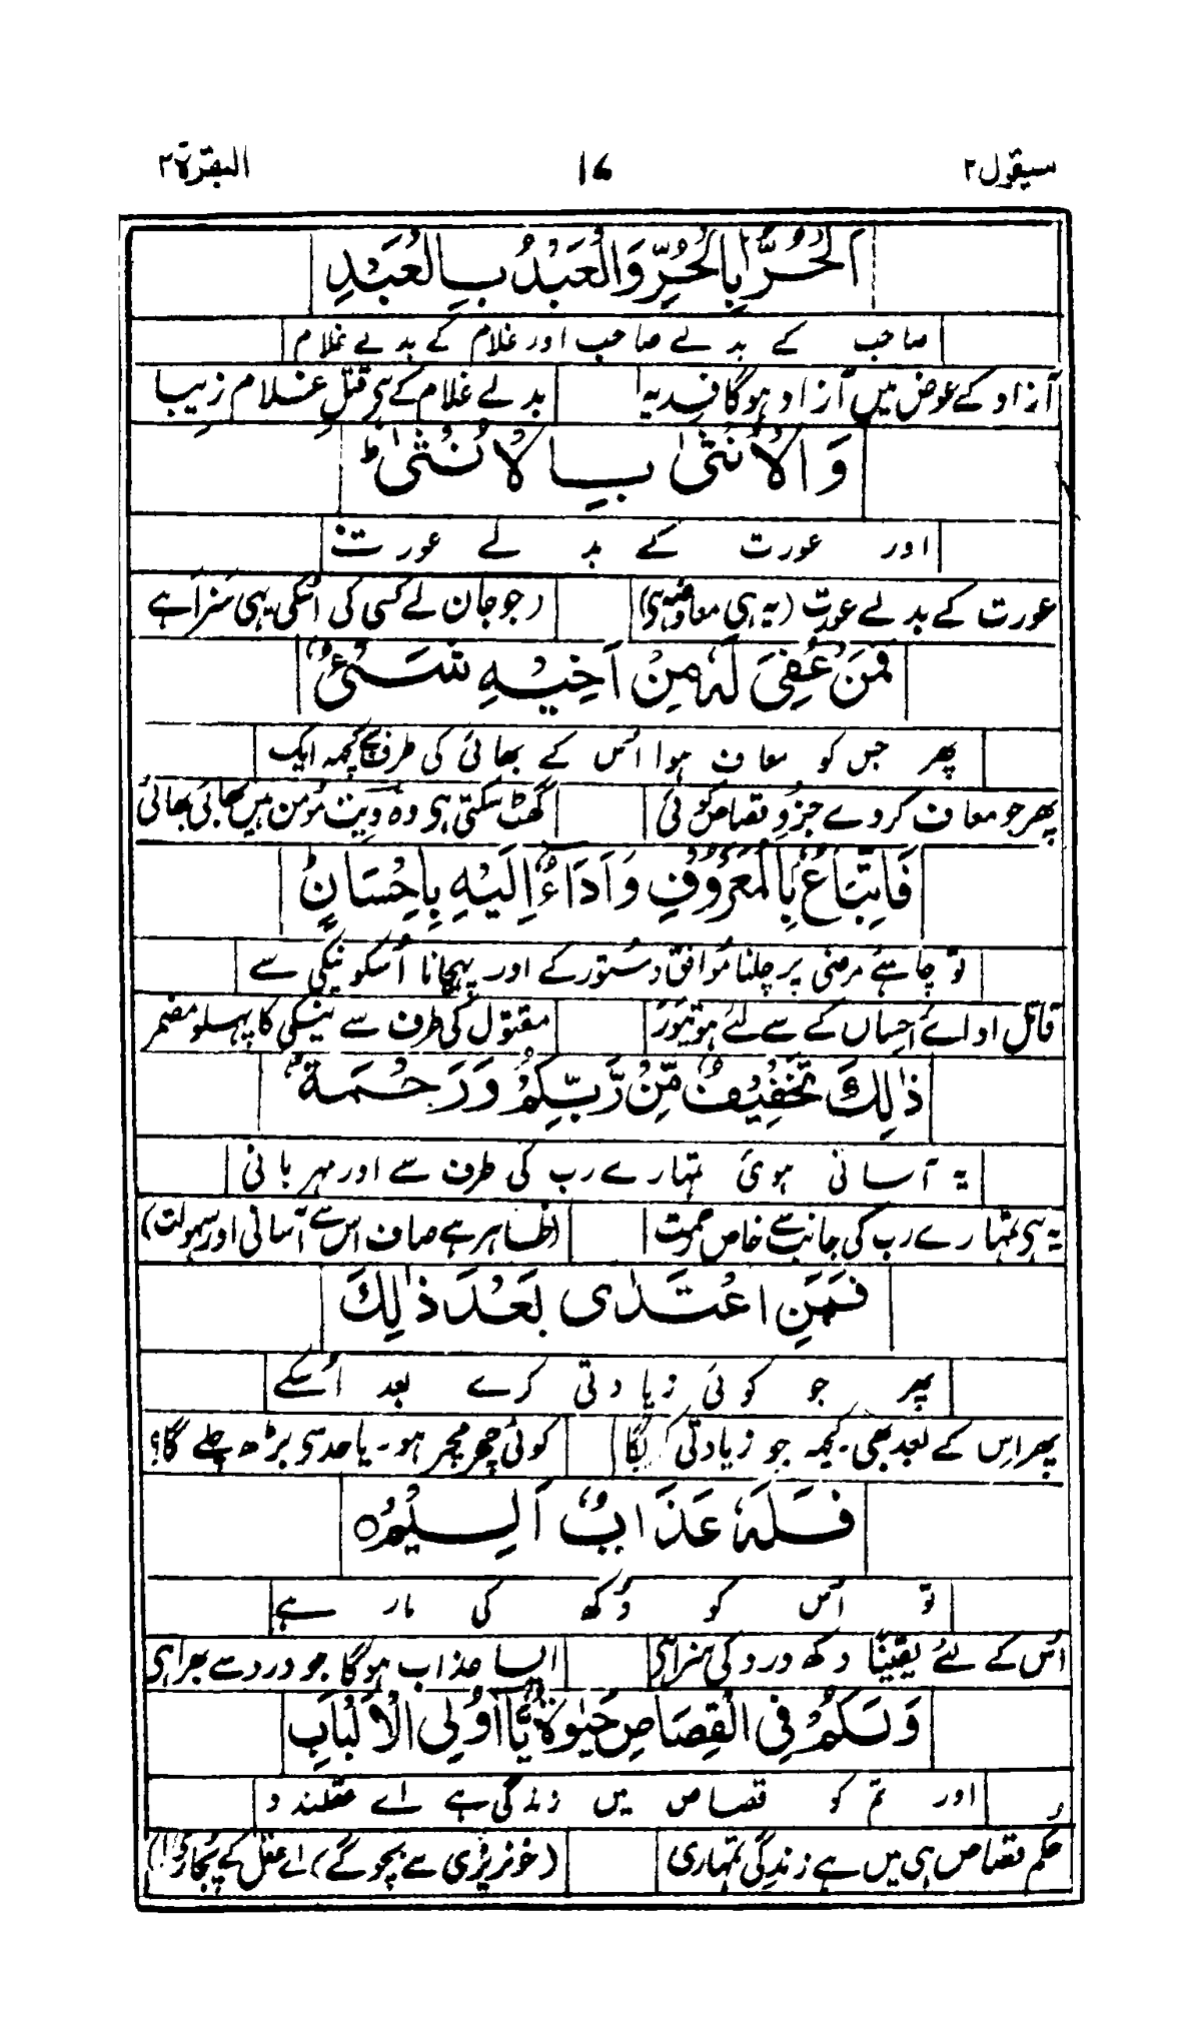 سیقول ۲ ۱۷ البقرۃ ۲
اَلْحُرُّ بِالْحُرِّ وَالْعَبْدُ بِالْعَبْدِ
صاحب کے بدلے صاحب اور غلام کے بدلے غلام
آزاد کے عوض میں آزاد ہوگا فدیہ بدلے غلام کے ہی قتلِ غلام زیبا
وَالْاُنْثٰى بِالْاُنْثٰى ؕ
اور عورت کے بدلے عورت
عورت کے بدلے عورت (یہ ہی معاوضہ ہی) (جو جان لے کسی کی اُسکی یہی سزا ہے
فَمَنْ عُفِیَ لَهٗ مِنْ اَخِیْهِ شَیْءٌ
پھر جس کو معاف ہوا اُس کے بھائی کی طرف سے کچھ ایک
پھر جو معاف کردے جزوِ قصاص کوئی گھٹ سکتی ہی وہ دِیت مؤمن ہیں بھائی بھائی
فَاتِّبَاعٌۢ بِالْمَعْرُوْفِ وَاَدَآءٌ اِلَیْهِ بِاِحْسَانٍ ؕ
تو چاہئے مرضی پر چلنا مُوافق دستور کے اور پہچانا اُسکو نیکی سے
قاتل ادائے احساں کے لئے ہو مقتول کی طرف سے نیکی کا پہلو مضمر
ذٰلِكَ تَخْفِیْفٌ مِّنْ رَّبِّكُمْ وَرَحْمَةٌ ؕ
یہ آسانی ہوئی تمہارے رب کی طرف سے اور مہربانی
یہ ہی تمہارے رب کی جانب سے خاص رحمت (ظاہر ہے صاف اس سے آسانی اور سہولت)
فَمَنِ اعْتَدٰى بَعْدَ ذٰلِكَ
پھر جو کوئی زیادتی کرے بعد اُسکے
پھر اِس کے بعد بھی۔ کچھ جو زیادتی کوئی ہو۔ یا حد ہی بڑھ چلے گا؟
فَلَهٗ عَذَابٌ اَلِیْمٌ ○
تو اُس کو دُکھ کی مار ہے
اُس کے لئے یقیناً دکھ درد کی سزا ہی ایسا عذاب ہوگا جو درد سے بھرا ہی
وَلَكُمْ فِی الْقِصَاصِ حَیٰوةٌ یّٰۤاُولِی الْاَلْبَابِ
اور تم کو قصاص میں زندگی ہے اے عقلمندو
حکمِ قصاص ہی میں ہے زندگی تمہاری (خونریزی سے بچو گے) اے عقل کے پُجاری!